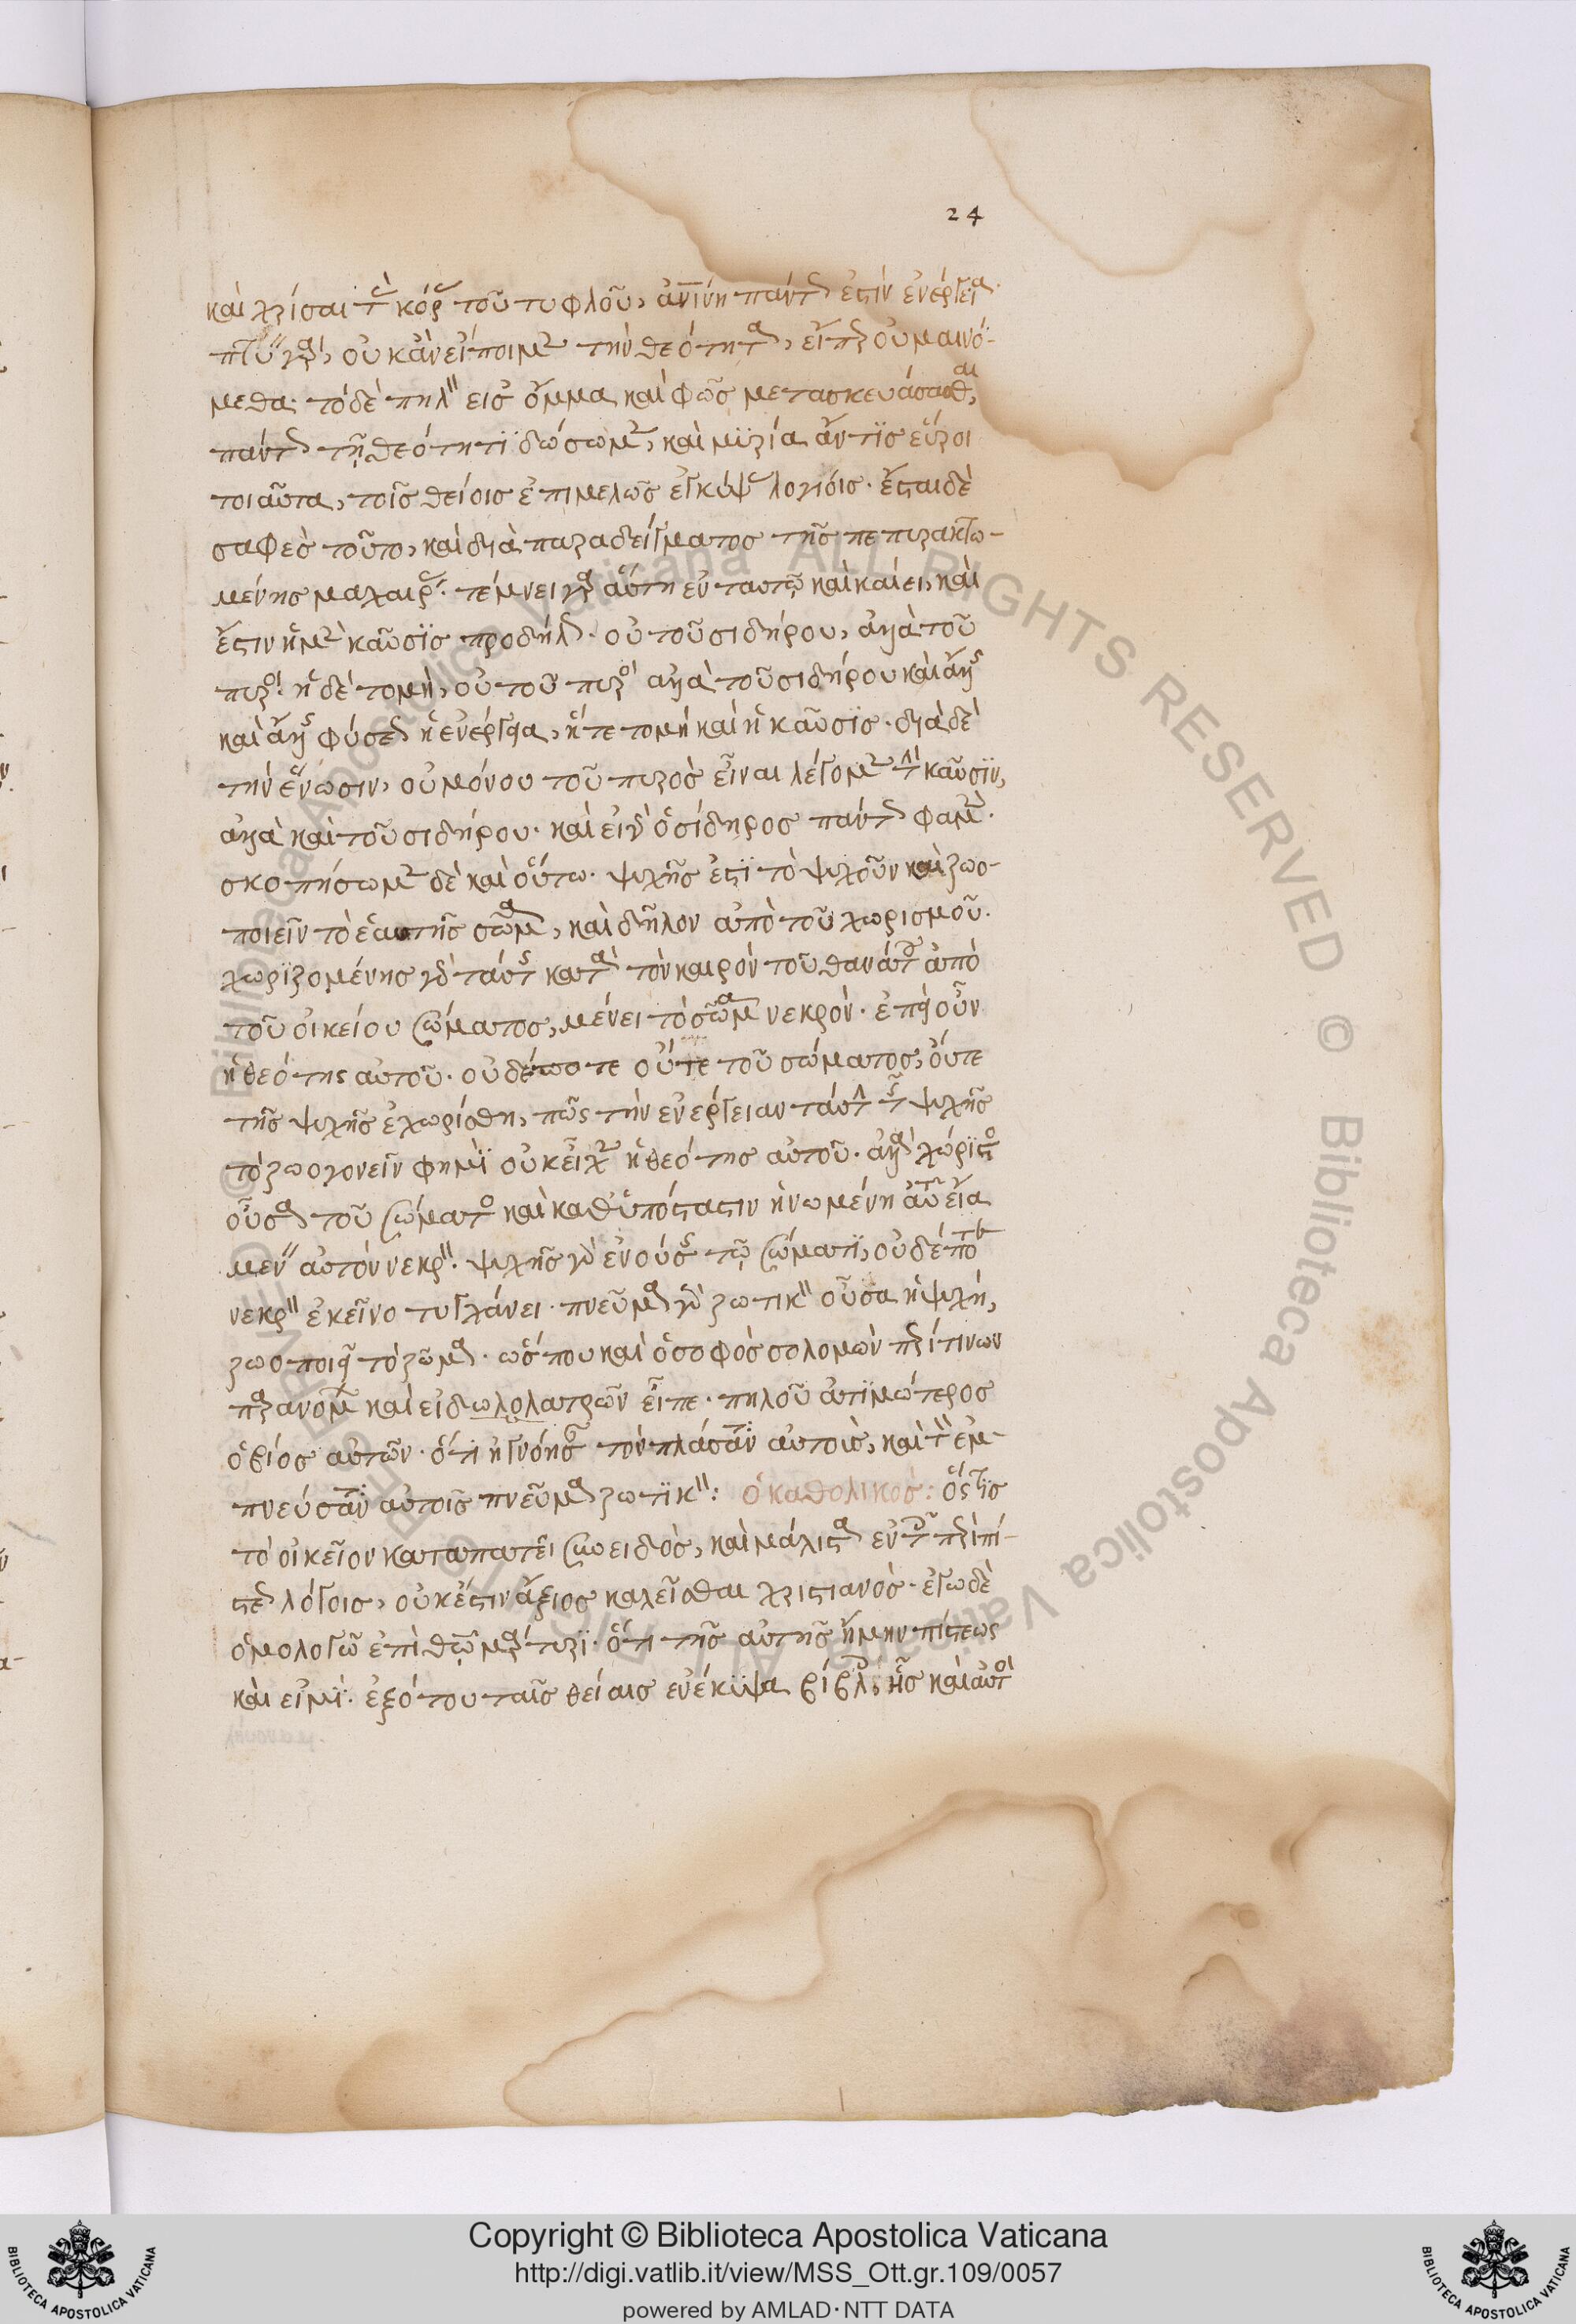 24
καὶ χρίσαι τὰς κόρας τοῦ τυφλοῦ, ἀν̅ίνη πάντως ἐστὶν ἐνέργεια·
οὐκ ἂν εἴποιμεν τὴν θεότητα, εἴπερ οὐ μαινό-
μεθα· τὸ δὲ πηλὸν εἰς ὄμμα καὶ φῶς μετασκευάσασθαι,
πάντως τῇ θεότητϊ δώσωμεν, καὶ μϋρία ἄν τϊς εὕροι
τοιαῦτα, τοῖς θείοις ἐπιμελῶς ἐγκύψας λογίοις· ἔσται δὲ
σαφὲς τοῦτο, καὶ διὰ παραδείγματος τῆς πεπυρακτω-
μένης μαχαίρας· τέμνει γὰρ αὕτη ἐν ταυτῷ καὶ καίει, καὶ
ἔστιν ἡ μὲν καῦσϊς προδήλως· οὐ τοῦ σιδήρου, ἀλλὰ τοῦ
πυρός· ἡ δὲ τομὴ, οὐ τοῦ πυρὸς ἀλλὰ τοῦ σιδήρου καὶ ἄλλης
καὶ ἄλλης φύσεως ἡ ἐνέργεια, ἥτε τομὴ καὶ ἡ καῦσϊς· διὰ δὲ
τὴν ἕνωσιν, οὐ μόνου τοῦ πυρὸς εἶναι λέγομεν τὴν καῦσϊν,
ἀλλὰ καὶ τοῦ σιδήρου· καὶ ὁ σίδηρος πάντως φαμὲν·
σκοπήσωμεν δὲ καὶ οὕτω· ψυχῆς ἐστϊ τὸ ψυχοῦν καὶ ζωο-
ποιεῖν τὸ ἑαυτῆς σῶμα, καὶ δῆλον ἀπὸ τοῦ χωρισμοῦ·
χωρϊζομένης γὰρ ταύτης κατὰ τὸν καιρὸν τοῦ θανάτου ἀπὸ
τοῦ οἰκείου σώματος, μένει τὸ σῶμα νεκρὸν· ἐπεὶ οὖν
ἡ θεότης αὐτοῦ· οὐδέποτε οὔτε τοῦ σώματος, οὔτε
τῆς ψυχῆς ἐχωρίσθη, πῶς τὴν ἐνέργειαν ταύτην τῆς ψυχῆς
τὸ ζωογονεῖν φημὶ οὐκ εἶχεν ἡ θεότης αὐτοῦ· ἀλλὰ χώρϊστος
οὖσα τοῦ σώματος καὶ καθ' ὑπόστασιν ἡνωμένη αὐτῷ εἴα
μένειν αὐτὸν νεκρόν· ψυχῆς γὰρ ἐνούσης τῷ σώματϊ, οὐδέποτε
νεκρὸν ἐκεῖνο τυγχάνει· πνεῦμα γὰρ ζωτικὸν οὖσα ἡ ψυχή,
ζωοποιεῖ τὸ ζῶμα· ὥς που καὶ ὁ σοφὸς σολομὼν περί τινων
παρανόμων καὶ εἰδωλολατρῶν εἶπε· πηλοῦ ἀτϊμώτερος
ὁ βίος αὐτῶν· ὅτι ἠγνόησαν τὸν πλάσαντα αὐτοὺς, καὶ τὸν ἐμ-
πνεύσαντα αὐτοῖς πνεῦμα ζωτϊκόν: ὁ καθολικὸς: ὅστϊς
τὸ οἰκεῖον καταπατεῖ συνειδὸς, καὶ μάλιστα ἐν τοῖς περὶ πί-
στεως λόγοις, οὐκ ἔστιν ἄξιος καλεῖσθαι χριστιανὸς· ἐγὼ δὲ
ὁμολογῶ ἐπὶ θεῷ μάρτυρϊ· ὅτι τῆς αὐτῆς ἤμην πίστεως
καὶ εἰμὶ· ἐξότου ταῖς θείαις ἐνέκυψα βίβλοις, ἧς καὶ αὐτὸς